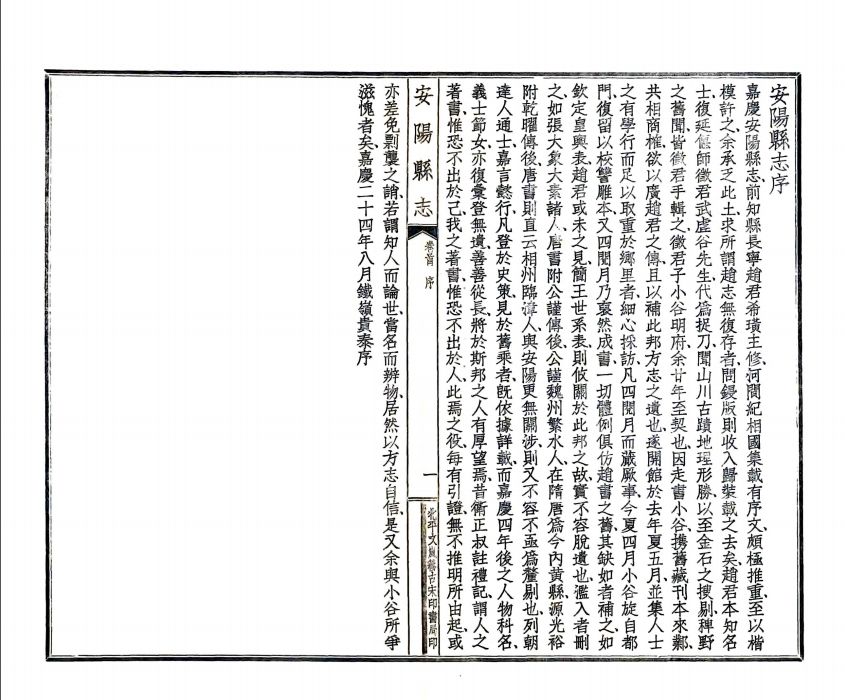 安陽縣志序
嘉慶安陽縣志前知縣長寧趙君希璜主修河間紀相國集載有序文頗極推重至以楷
模許之余承乏此土求所謂趙志無復存者問鋟版則收入歸裝載之去矣趙君本知名
士復延偃師徵君武虛谷先生代爲捉刀聞山川古蹟地理形勝以至金石之搜剔稗野
之舊聞皆徵君手輯之徵君子小谷明府余廿年至契也因走書小谷攜舊藏刊本來鄴
共相商榷欲以廣趙君之傳且以補此邦方志之遺也遂開館於去年夏五月並集人士
之有學行而足以取重於鄉里者細心採訪凡四閱月而蕆厥事今夏四月小谷旋自都
門復留以校讐雕本又四閱月乃裒然成書一切體例俱仿趙書之舊其缺如者補之如
欽定皇輿表趙君或未之見簡王世系表則攸關於此邦之故實不容脫遺也濫入者刪
之如張大象大素諸人唐書附公謹傳後公謹魏州繁水人在隋唐爲今內黃縣源光裕
附乾曜傳後唐書則直云相州臨漳人與安陽更無關涉則又不容不亟爲釐剔也列朝
達人通士嘉言懿行凡登於史策見於舊乘者旣依據詳載而嘉慶四年後之人物科名
義士節女亦復彙登無遺善善從長將於斯邦之人有厚望焉昔衛正叔註禮記謂人之
著書惟恐不出於己我之著書惟恐不出於人此焉之役每有引證無不推明所由起或
安陽縣志
卷首 序
一
北平文嵐簃古宋印書局印
亦差免剽襲之誚若謂知人而論世當名而辨物居然以方志自信是又余與小谷所爭
滋愧者矣嘉慶二十四年八月鐵嶺貴泰序